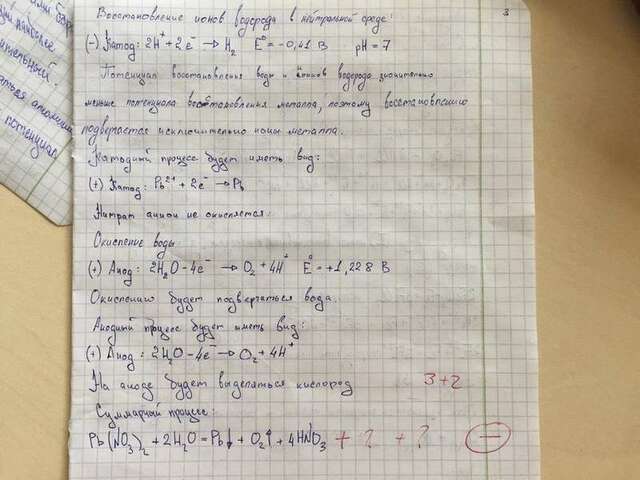 3
Восстановление ионов водорода в нейтральной среде:
(-) Катод: 2H⁺ + 2e⁻ → H₂ E° = -0,41 В pH = 7
Потенциал восстановления воды и ионов водорода значительно
меньше потенциала восстановления металла, поэтому восстановлению
подвергается исключительно ионы металла.
Катодный процесс будет иметь вид:
(+) Катод: Pb²⁺ + 2e⁻ → Pb
Нитрат анион не окисляется.
Окисление воды:
(+) Анод: 2H₂O - 4e⁻ → O₂ + 4H⁺ E° = +1,228 В
Окислению будет подвергаться вода.
Анодный процесс будет иметь вид:
(+) Анод: 2H₂O - 4e⁻ → O₂ + 4H⁺
На аноде будет выделяться кислород
3+2
Суммарный процесс:
Pb(NO₃)₂ + 2H₂O = Pb↓ + O₂↑ + 4HNO₃ + ? + ? −
наиболее
потенциал